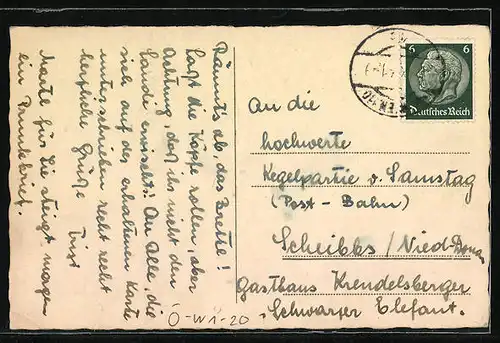 Räumt's ab, das Brettl!
Laßt die Köpfe rollen, aber
Achtung, daß ihr nicht den
Gandi erwischt! An Alle, die
sich auf der erhaltenen Karte
unterschrieben recht recht
herzliche Grüße
Morte für Sie steigt morgen
ein Prunkbrief.
An die
hochwerte
Kegelpartie v. Samstag
(Post-Bahn)
Scheibbs / Nied-Donau
Gasthaus Krendelsberger
"Schwarzer Elefant".
Ö-W1-20
6 6
Deutsches Reich